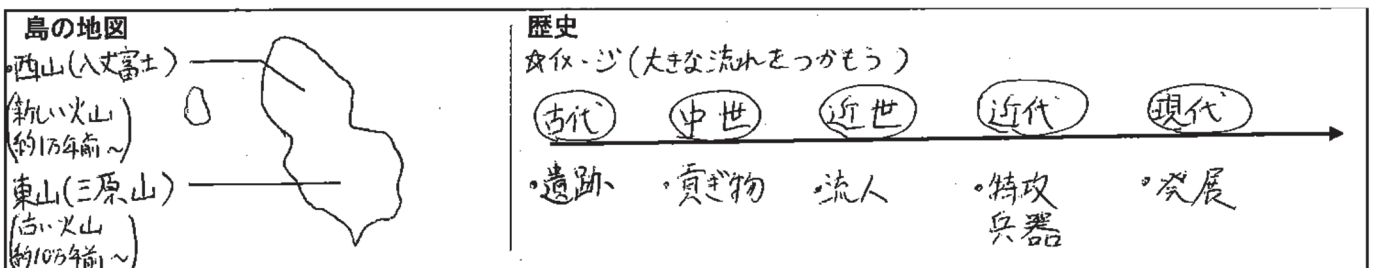 島の地図
・西山(八丈富士)
(新しい火山
約1万年前~)
東山(三原山)
(古い火山
約10万年前~)
歴史
☆イメージ(大きな流れをつかもう)
古代 中世 近世 近代 現代
・遺跡 ・貢ぎ物 ・流人 ・特攻 ・発展
兵器